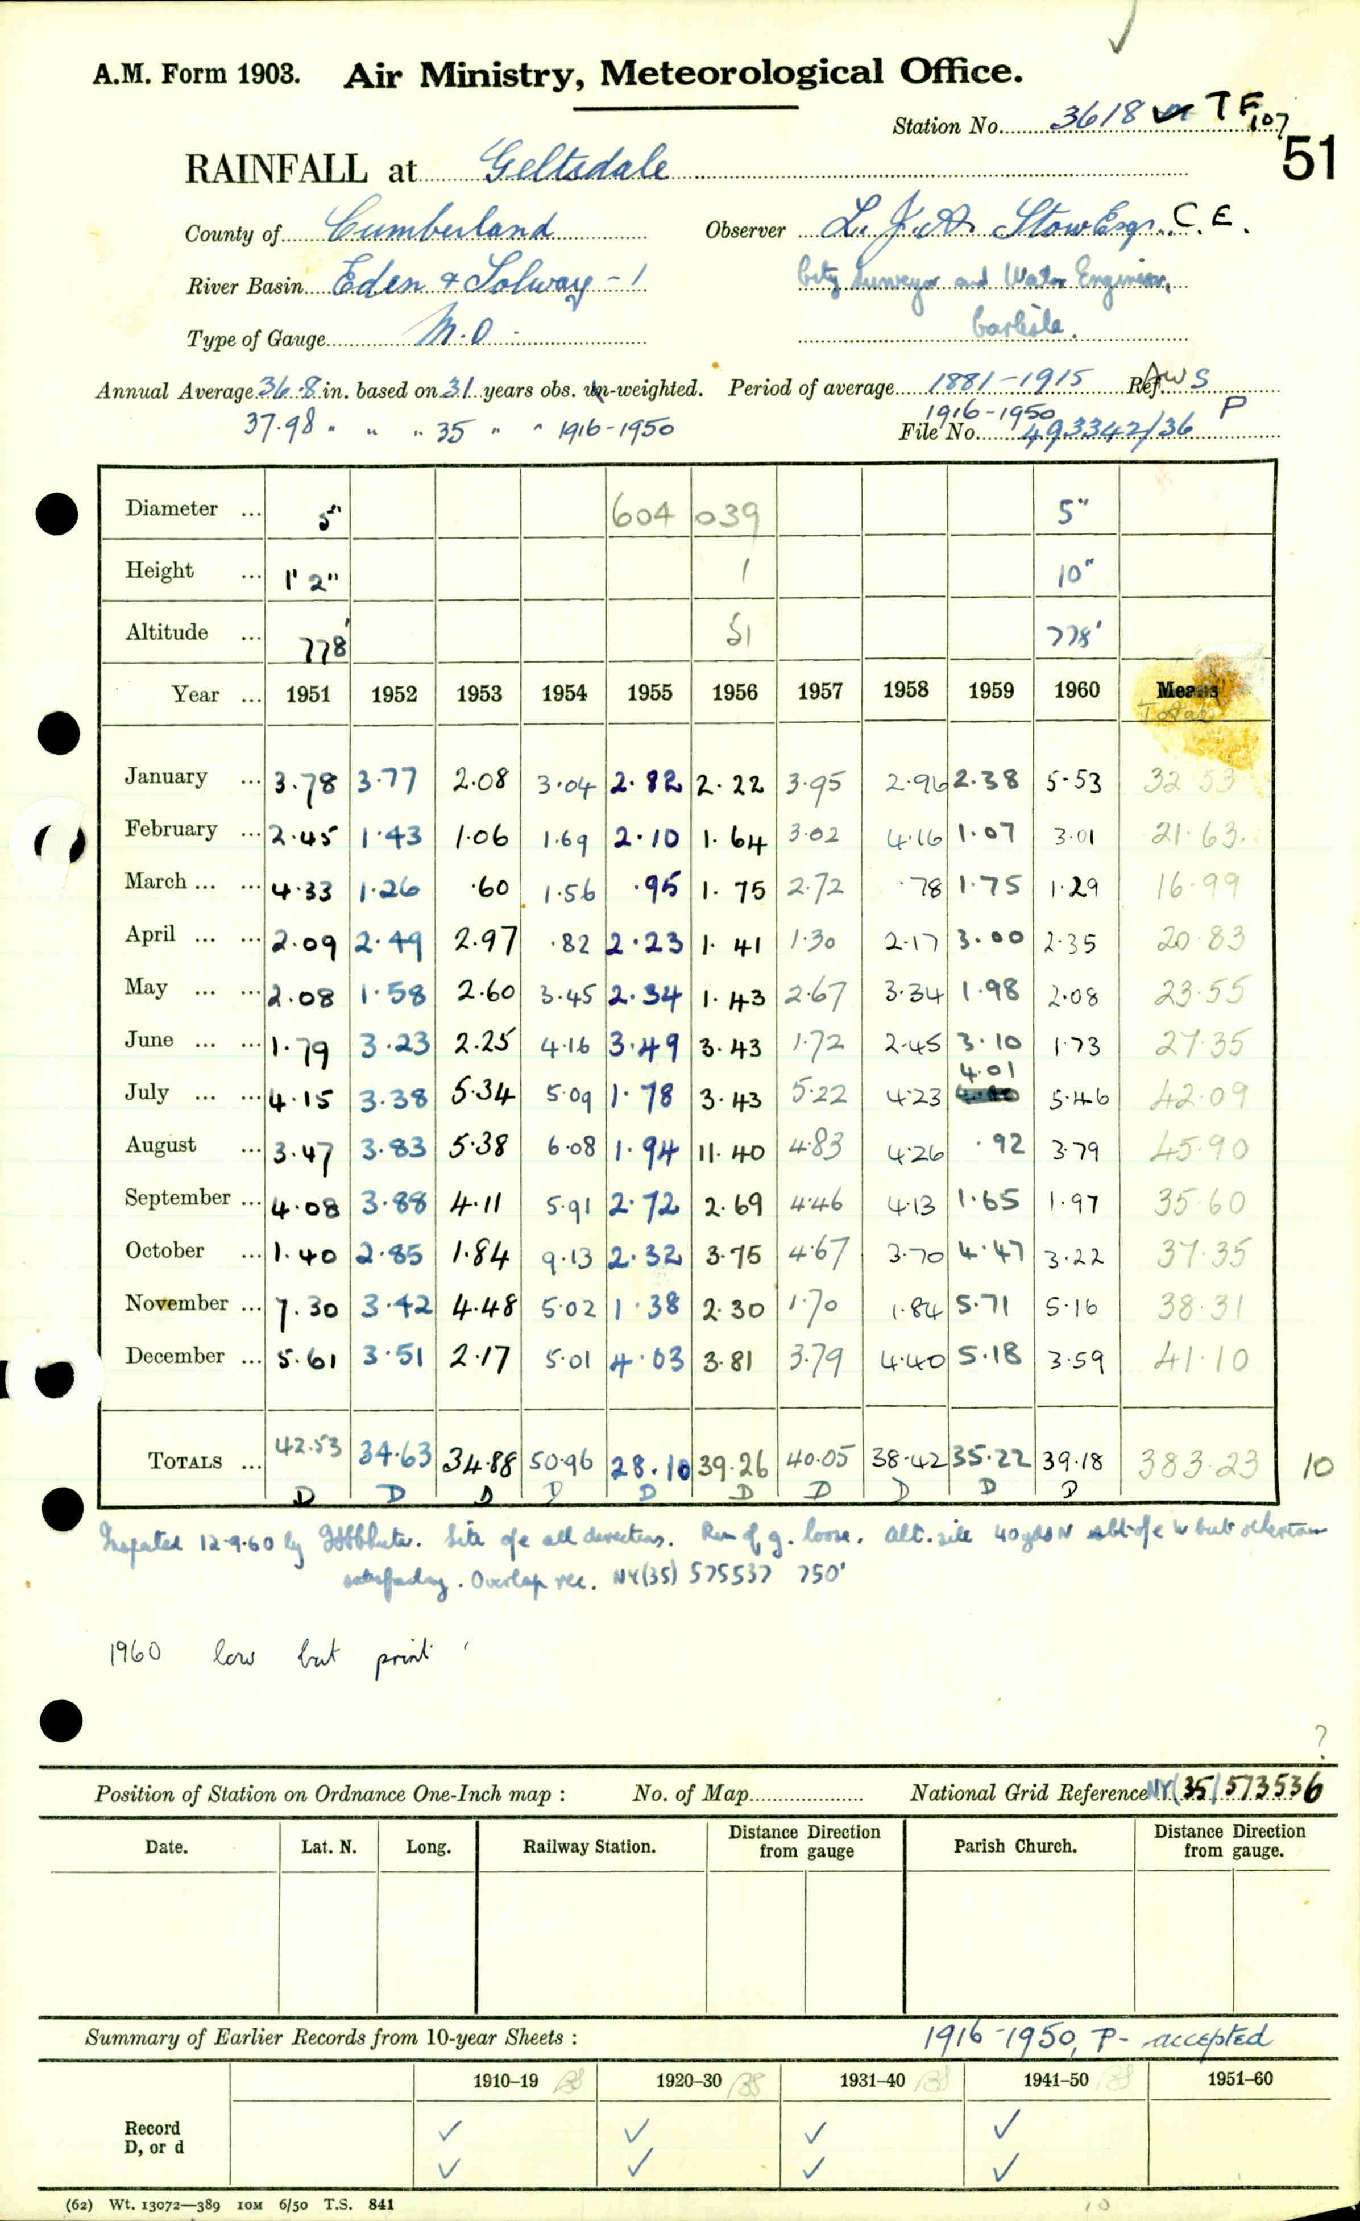 A.M. Form 1903. Air Ministry, Meteorological Office.
Station No. 3618 TF 107
51
RAINFALL at Geltsdale
County of Cumberland Observer L. J. A. Stow Esqr. C.E.
River Basin Eden & Solway - 1 City Surveyor and Water Engineer,
Type of Gauge M.O. Carlisle.
Annual Average 36.8 in. based on 31 years obs. un-weighted. Period of average 1881-1915 Ref. AWS
37.98 " " " 35 " " 1916-1950 1916-1950 P
File No. 493342/36
Diameter ... 5" 604 039 5"
Height ... 1' 2" 1 10"
Altitude ... 778' 51 778'
Year ... 1951 1952 1953 1954 1955 1956 1957 1958 1959 1960 Means
Total
January ... 3.78 3.77 2.08 3.04 2.82 2.22 3.95 2.96 2.38 5.53 32.53
February ... 2.45 1.43 1.06 1.69 2.10 1.64 3.02 4.16 1.07 3.01 21.63
March ... ... 4.33 1.26 .60 1.56 .95 1.75 2.72 .78 1.75 1.29 16.99
April ... ... 2.09 2.49 2.97 .82 2.23 1.41 1.30 2.17 3.00 2.35 20.83
May ... ... 2.08 1.58 2.60 3.45 2.34 1.43 2.67 3.34 1.98 2.08 23.55
June ... ... 1.79 3.23 2.25 4.16 3.49 3.43 1.72 2.45 3.10 1.73 27.35
July ... ... 4.15 3.38 5.34 5.09 1.78 3.43 5.22 4.23 4.01 5.46 42.09
August ... 3.47 3.83 5.38 6.08 1.94 11.40 4.83 4.26 .92 3.79 45.90
September ... 4.08 3.88 4.11 5.91 2.72 2.69 4.46 4.13 1.65 1.97 35.60
October ... 1.40 2.85 1.84 9.13 2.32 3.75 4.67 3.70 4.47 3.22 37.35
November ... 7.30 3.42 4.48 5.02 1.38 2.30 1.70 1.84 5.71 5.16 38.31
December ... 5.61 3.51 2.17 5.01 4.03 3.81 3.79 4.40 5.18 3.59 41.10
TOTALS ... 42.53 34.63 34.88 50.96 28.10 39.26 40.05 38.42 35.22 39.18 383.23 10
D D D D D D D D D D
Inspected 12-9-60 by Site ofe all directions. Rim of g. loose. Alt. site 40 yds N but otherwise
satisfactory. Overlap rec. NY(35) 575537 750'
1960 low but print
?
Position of Station on Ordnance One-Inch map : No. of Map National Grid Reference NY(35) 573536
Date. Lat. N. Long. Railway Station. Distance from Direction gauge Parish Church. Distance from Direction gauge.
Summary of Earlier Records from 10-year Sheets : 1916-1950, P- accepted
1910–19 1920–30 1931–40 1941–50 1951–60
Record
D, or d
(62) Wt. 13072—389 10M 6/50 T.S. 841
10